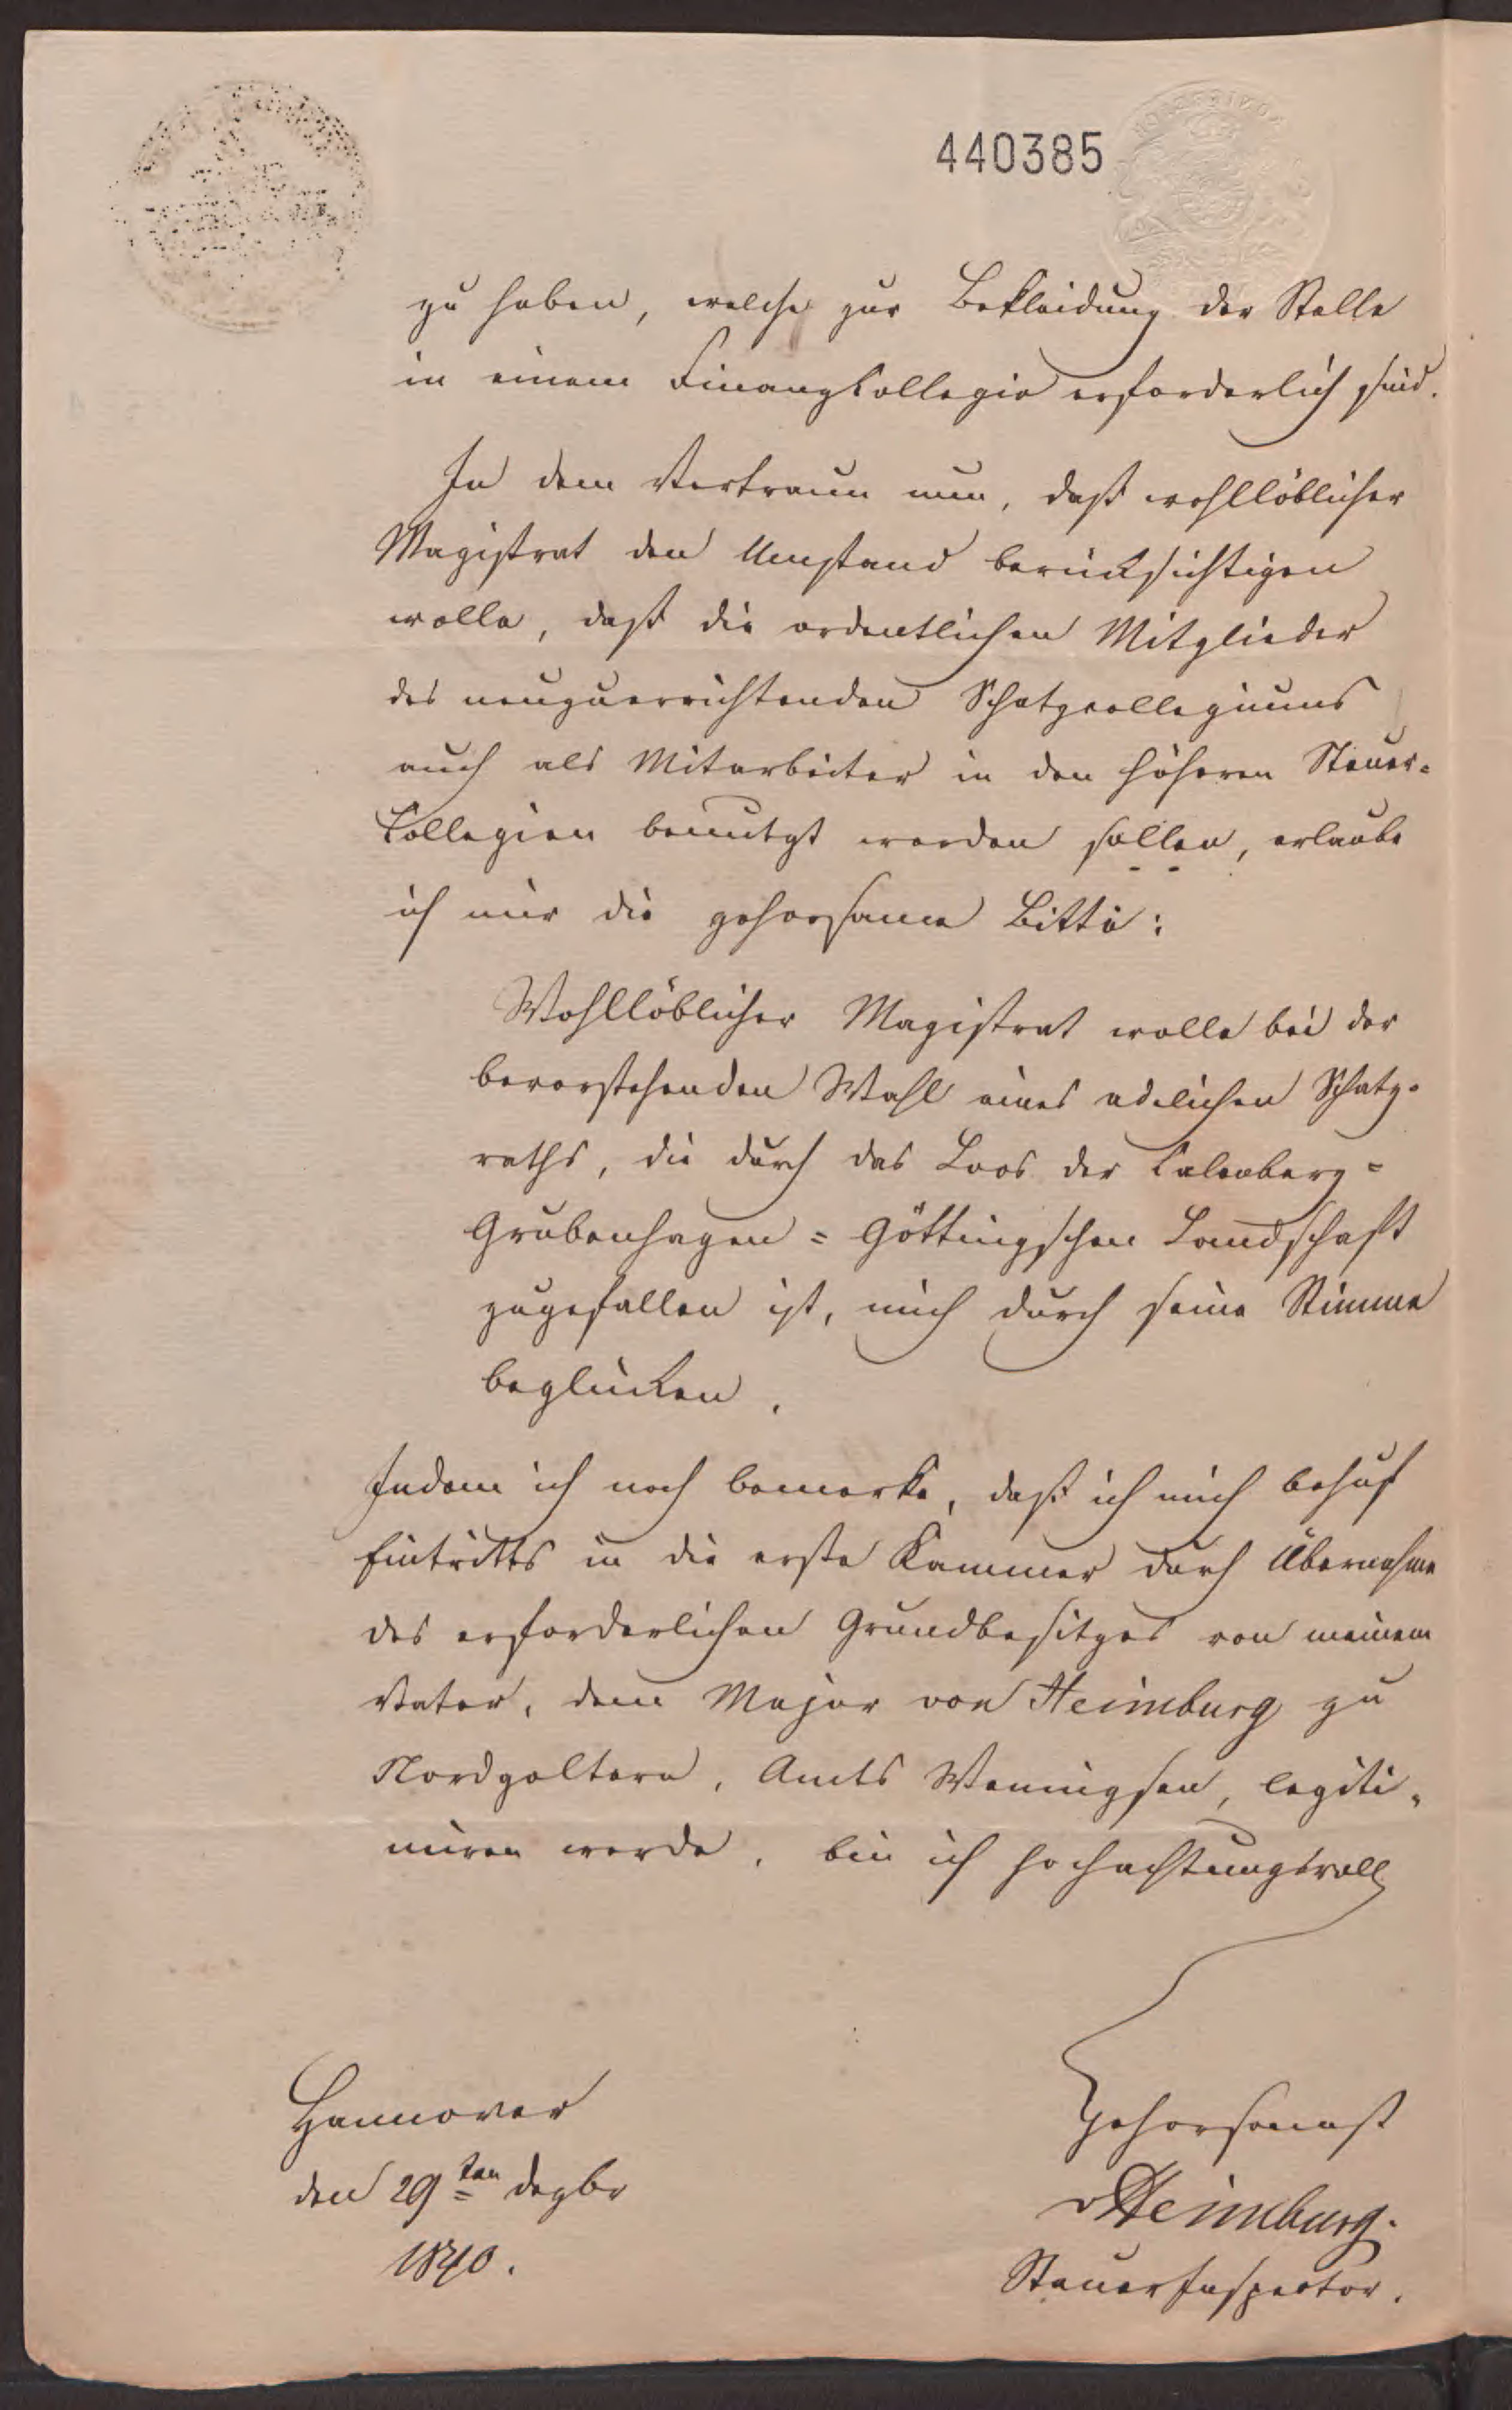 440385
zu haben, welche zur Bekleidung der Stelle
in einem Finanzkollegio erforderlich sind.
In dem Vertraun nun, daß wohllöblicher
Magistrat den Umstand berücksichtigen
wolle, daß die ordentlichen Mitglieder
des neuzuerrichtenden Schatzcollegiums
auch als Mitarbeiter in den höheren Steuer=
Collegien benutzt werden sollen, erlaube
ich mir die gehorsame Bitte:
Wohllöblicher Magistrat wolle bei der
bevorstehenden Wahl eines adelichen Schatz=
raths, die durch das Loos der Calenberg=
Grubenhagen=Göttingschen Landschaft
zugefallen ist, mich durch seine Stimme
beglücken.
Indem ich noch bemerke, daß ich mich behuf
Eintritts in die erste Kammer durch Übernahme
des erforderlichen Grundbesitzes von meinem
Vater, dem Major von Heimburg zu
Nordgoltern, Amts Wennigsen, legiti=
miren werde, bin ich hochachtungsvoll
Hannover
den 29ten Dezbr
1840.
Gehorsamst
vHeimburg.
SteuerInspector.